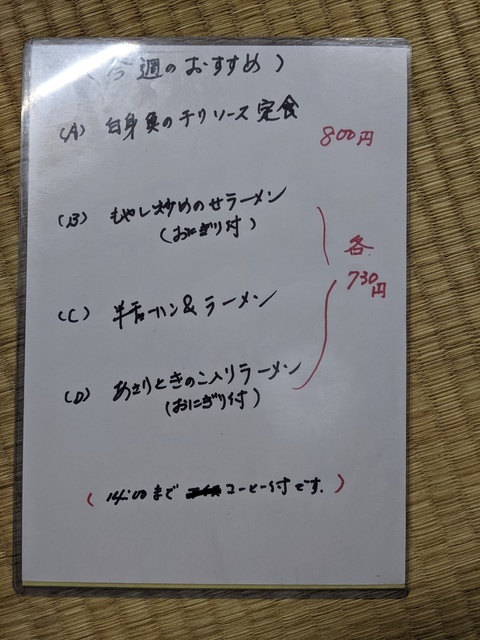 (今週のおすすめ)
(A) 白身魚のチリソース定食
800円
(B) もやし炒めのせラーメン
(おにぎり付)
各
730円
(C) 半チャーハン&ラーメン
(D) あさりときのこ入りラーメン
(おにぎり付)
(14:00まで コーヒー付です.)